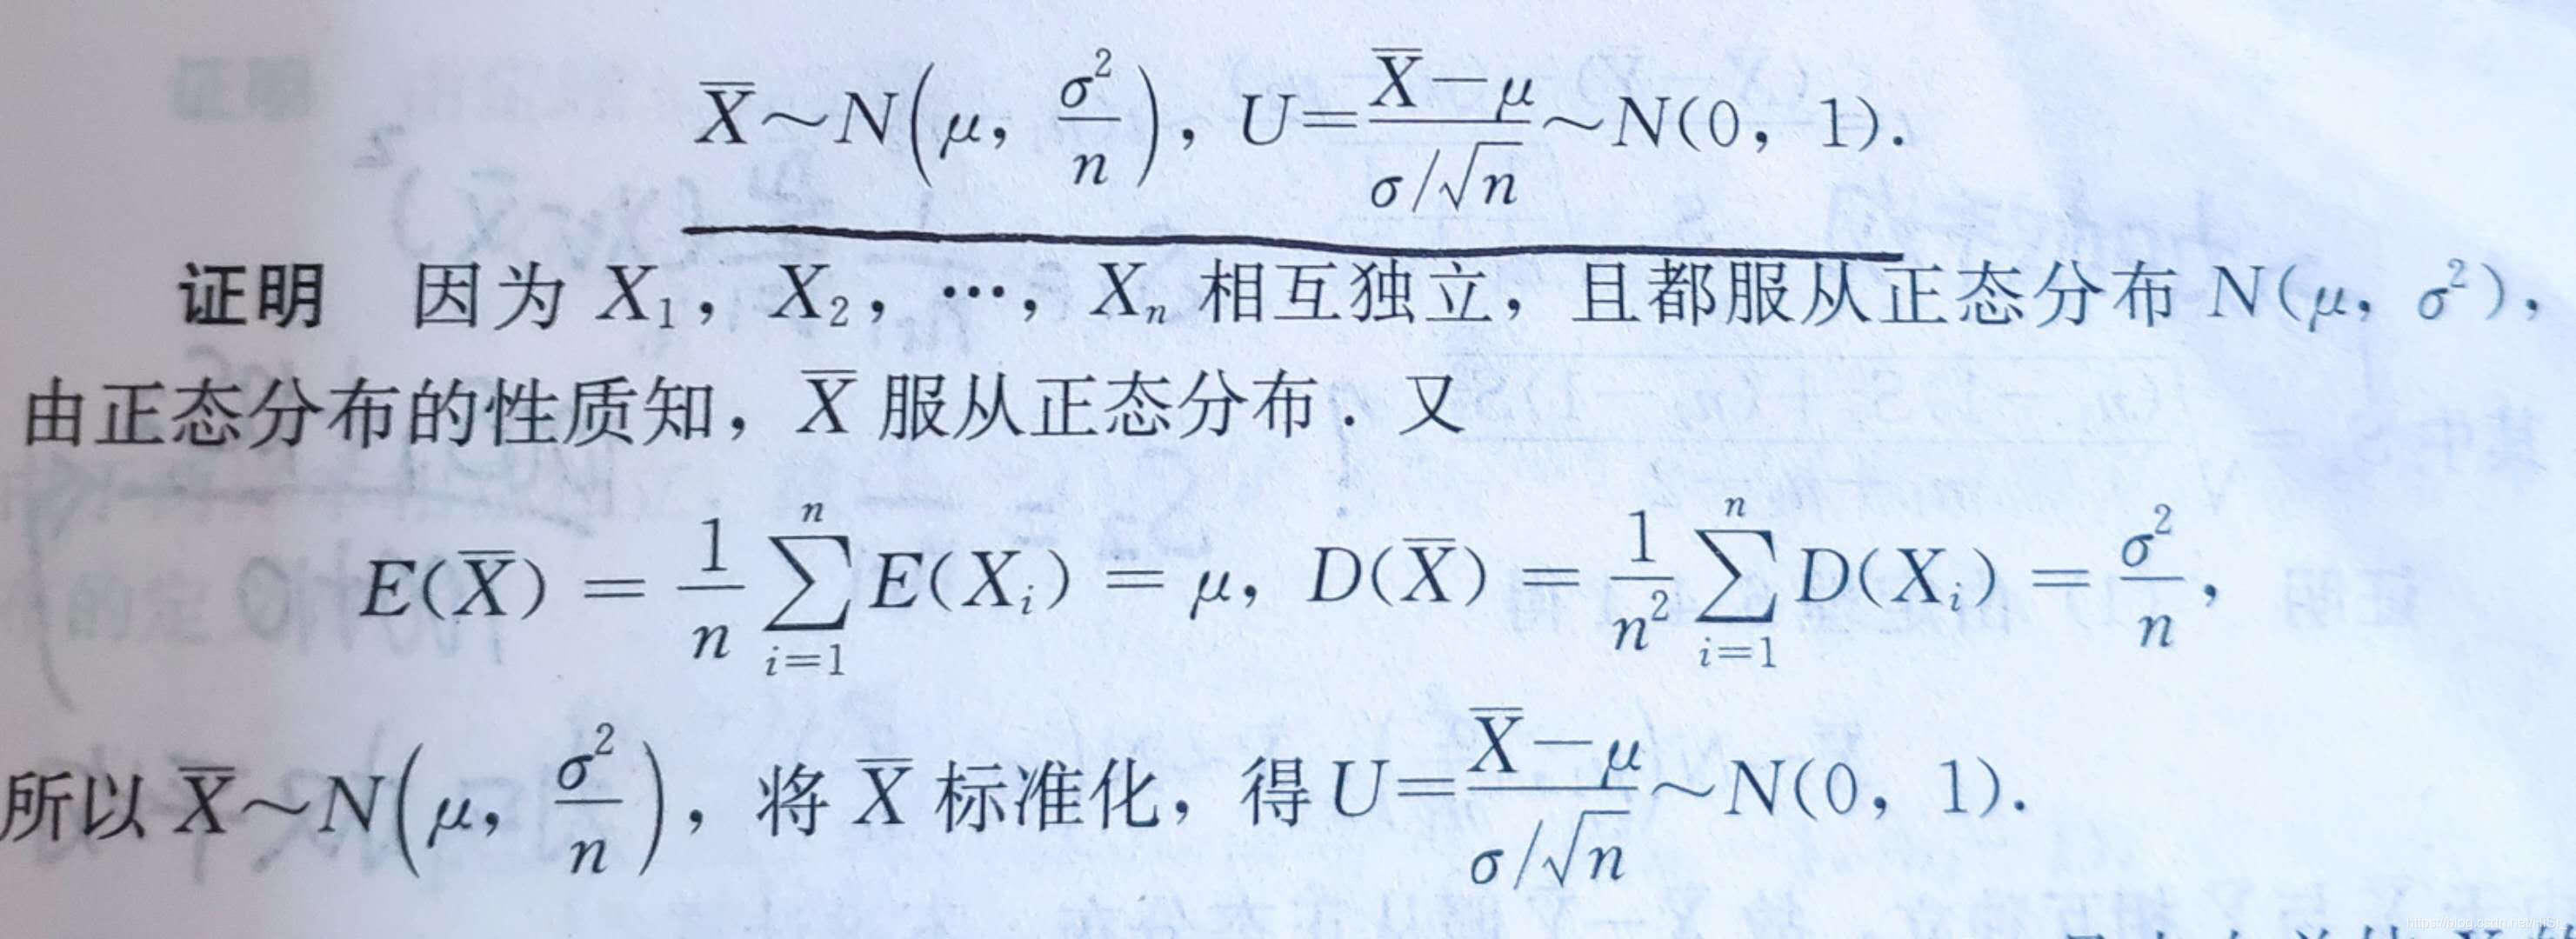 X̄～N(μ, σ²/n), U=(X̄－μ)/(σ/√n)～N(0, 1).
证明 因为 X₁, X₂, …, Xₙ 相互独立, 且都服从正态分布 N(μ, σ²),
由正态分布的性质知, X̄ 服从正态分布. 又
E(X̄) = 1/n ∑ⁿᵢ₌₁ E(Xᵢ) = μ, D(X̄) = 1/n² ∑ⁿᵢ₌₁ D(Xᵢ) = σ²/n,
所以 X̄～N(μ, σ²/n), 将 X̄ 标准化, 得 U=(X̄－μ)/(σ/√n)～N(0, 1).